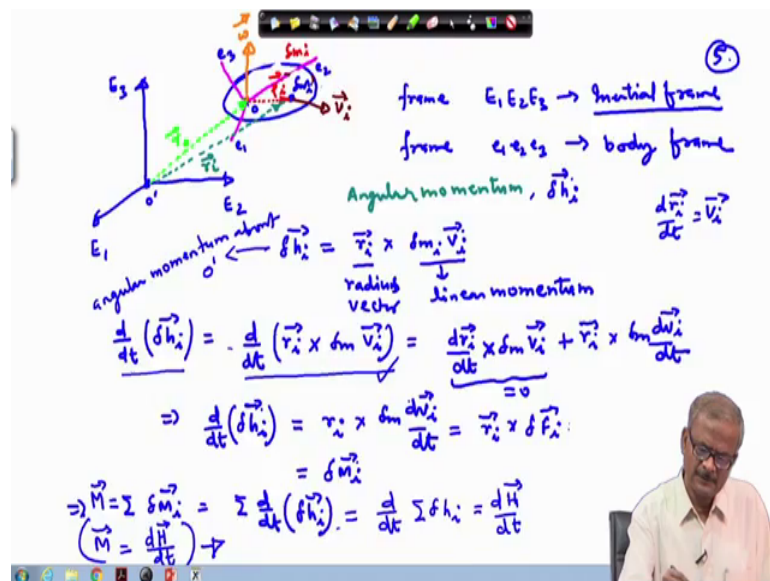 5.
ω⃗
e3
δmi
e2
E3
δmi
V⃗i
o
e1
r⃗i
o'
E2
E1
frame E1E2E3 → Inertial frame
frame e1 e2 e3 → body frame
Angular momentum, δh⃗i
dr⃗i/dt = V⃗i
angular momentum about o' ← δh⃗i = r⃗i × δmi V⃗i
radius vector
linear momentum
d/dt (δh⃗i) = d/dt (r⃗i × δm V⃗i) = dr⃗i/dt × δm V⃗i + r⃗i × δm dV⃗i/dt
=0
⇒ d/dt (δh⃗i) = ri × δm dV⃗i/dt = r⃗i × δF⃗i
= δM⃗i
⇒ M⃗ = Σ δM⃗i = Σ d/dt (δh⃗i) = d/dt Σ δhi = dH⃗/dt
(M⃗ = dH⃗/dt) →